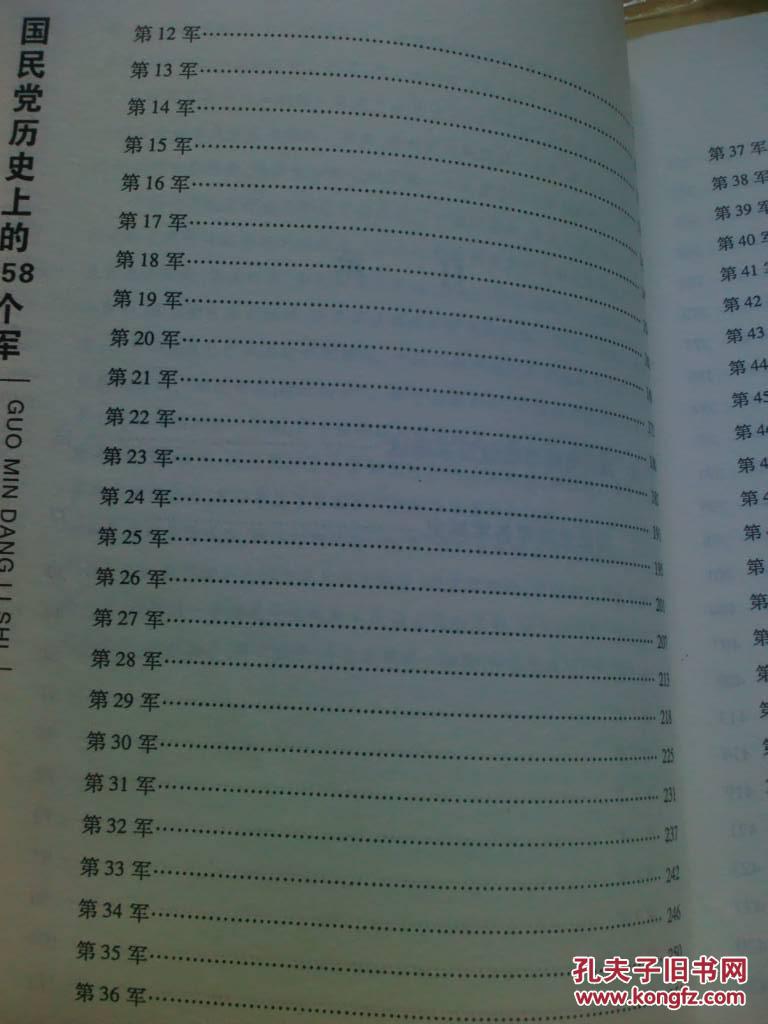 国民党历史上的
58个军 | GUO MIN DANG LI SHI
第 12 军
第 13 军
第 14 军
第 15 军
第 16 军
第 17 军
第 18 军
第 19 军
第 20 军
第 21 军
第 22 军
第 23 军
第 24 军 191
第 25 军 195
第 26 军 201
第 27 军 207
第 28 军 213
第 29 军 218
第 30 军 225
第 31 军 231
第 32 军 237
第 33 军 242
第 34 军 246
第 35 军
第 36 军
第 37 军
第 38 军
第 39 军
第 40 军
第 41
第 42
第 43
第 44
第 45
第
第
第
第
第
第
第
第
孔夫子旧书网
www.kongfz.com